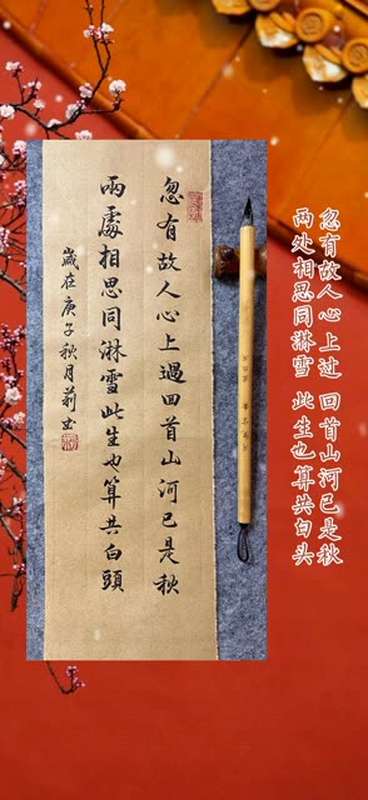 忽有故人心上过 回首山河已是秋
两处相思同淋雪 此生也算共白头
忽有故人心上過回首山河已是秋
兩處相思同淋雪此生也算共白頭
歲在庚子秋月莉书